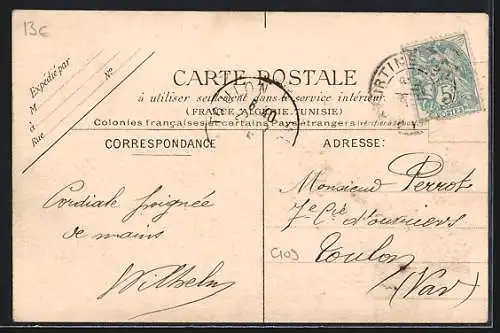 13€
Expédié par
M
à
Rue
N°
CARTE POSTALE
à utiliser seulement dans le service intérieur
(FRANCE, ALGÉRIE, TUNISIE)
Colonies françaises et certains Pays étrangers
CORRESPONDANCE
ADRESSE:
TOULON
5
Cordiale poignée
de mains
Wilhelm
Monsieur Perrot
7e Cie d'ouvriers
Toulon
(Var)
C109